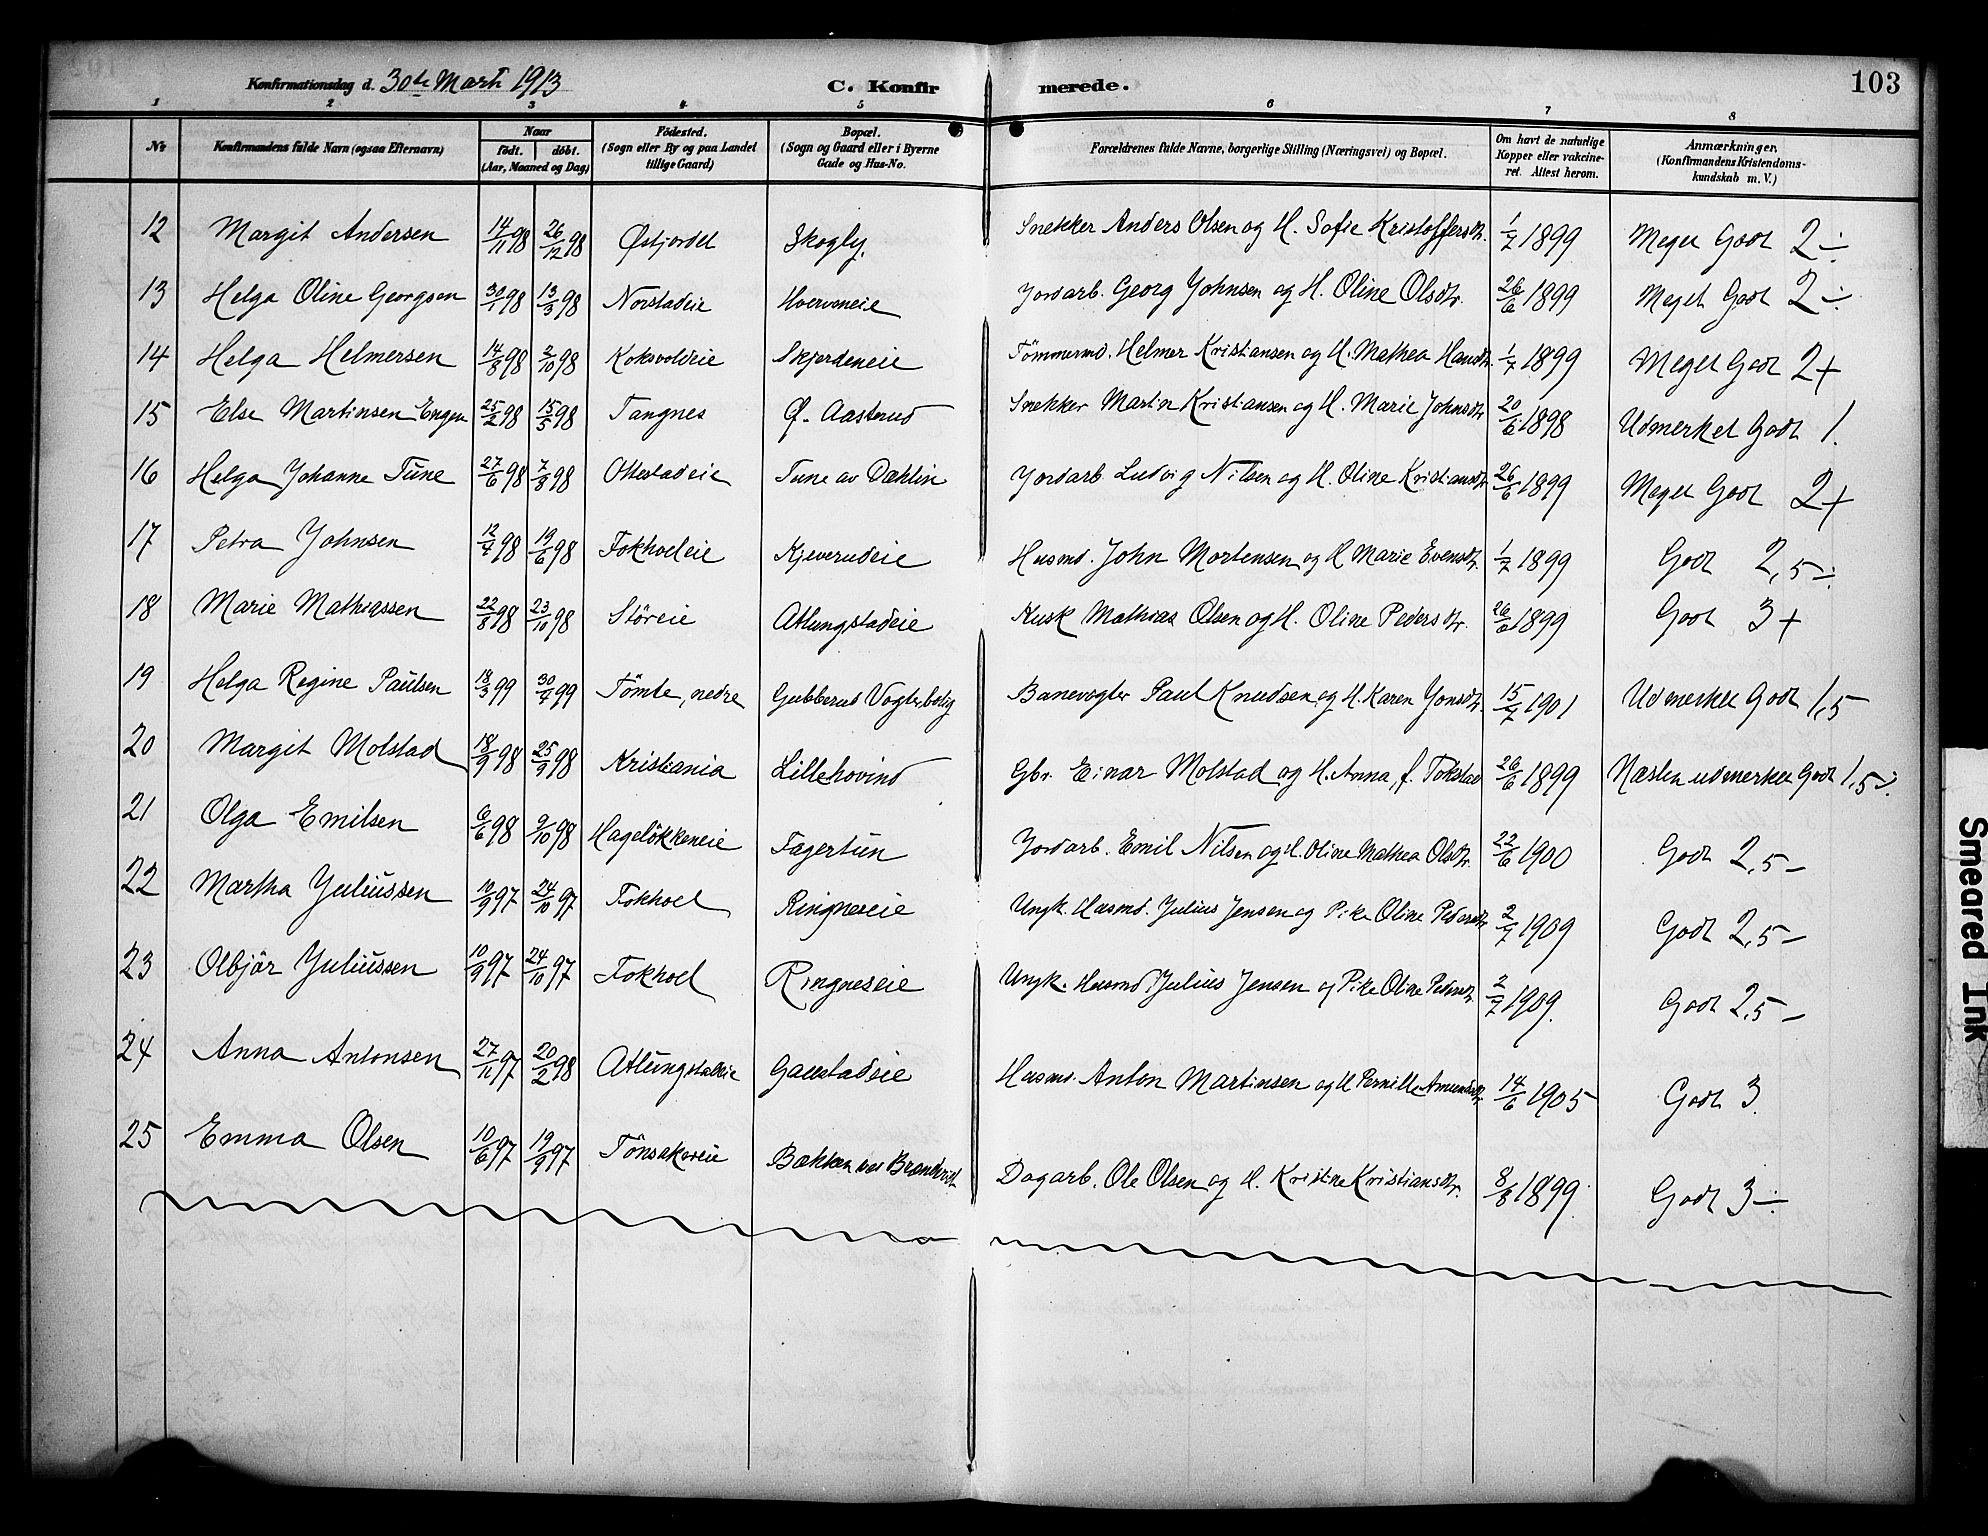 Konfirmationsdag d. 30de Marts 1913
C. Konfirmerede.
103
1 2 3 4 5 6 7 8
No
Konfirmandens fulde Navn (ogsaa Efternavn)
Naar
født. døbt.
(Aar, Maaned og Dag)
Fødested.
(Sogn eller By og paa Landet
tillige Gaard)
Bopæl.
(Sogn og Gaard eller i Byerne
Gade og Hus-No.
Forældrenes fulde Navne, borgerlige Stilling (Næringsvei) og Bopæl.
Om havt de naturlige
Kopper eller vakcine-
ret. Attest herom.
Anmærkninger.
(Konfirmandens Kristendoms-
kundskab m. V.)
12 Margit Andersen 14/11 98 26/12 98 Østjordet Skogly. Snekker Anders Olsen og H. Sofie Kristoffersdtr. 1/7 1899 Meget Godt 2 ÷
13 Helga Oline Georgsen 30/1 98 13/3 98 Norstadeie Hverveneie Jordarb. Georg Johnsen og H. Oline Olsdtr. 26/6 1899 Meget Godt 2 ÷
14 Helga Helmersen 14/8 98 2/10 98 Koksvoldeie Skjerdeneie Tömmermd. Helmer Kristiansen og H. Mathea Hansdtr. 1/7 1899 Meget Godt 2+
15 Else Martinsen Engen 25/2 98 15/5 98 Tangnes Ø. Aasterud Snekker Martin Kristiansen og H. Marie Johnsdtr 20/6 1898 Udmerket Godt 1.
16 Helga Johanne Tune 27/6 98 7/8 98 Ottestadeie Tune av Dæhlin Jordarb Ludvig Nilsen og H. Oline Kristiansdtr. 26/6 1899 Meget Godt 2+
17 Petra Johnsen 12/4 98 19/6 98 Fokholeie Kjeverudeie Husmd. John Mortensen og H Marie Evensdtr. 1/7 1899 Godt 2,5 ÷
18 Marie Mathiassen 22/8 98 23/10 98 Störeie Atlungstadeie Kusk Mathias Olsen og H. Oline Pedersdtr. 26/6 1899 Godt 3+
19 Helga Regine Paulsen 18/3 99 30/4 99 Tömte, nedre Gubberud Vogterbolig Banevogter Paul Knudsen og H. Karen Jonsdtr. 15/7 1901 Udmerket Godt 1,5
20 Margit Molstad 18/9 98 25/9 98 Kristiania Lillehovind Gbr. Einar Molstad og H. Anna, f. Tokstad 26/6 1899 Næsten udmerket Godt 1,5 ÷.
21 Olga Emilsen 6/6 98 9/10 98 Hagelökkeneie Fagertun Jordarb. Emil Nilsen og H. Oline Mathea Olsdtr. 22/6 1900 Godt 2,5 –
22 Martha Juliussen 10/9 97 24/10 97 Fokhoel Ringneseie Ungk. Husmd. Julius Jensen og Pike Oline Pedersdtr 2/7 1909 Godt 2,5 –
23 Olbjör Juliussen 10/9 97 24/10 97 Fokhoel Ringneseie Ungk. Husmd. Julius Jensen og Pike Oline Pedersdtr. 2/7 1909. Godt 2,5 –
24 Anna Antonsen 27/11 97 20/2 98 Atlungstadeie Gaustadeie Husmd. Anton Martinsen og H Pernille Amundsdtr. 14/6 1905 Godt 3.
25 Emma Olsen 10/6 97 19/9 97 Tönsakereie Bækken ved Brandvold Dagarb. Ole Olsen og H. Kristine Kristiansdtr. 8/8 1899. Godt 3 ÷
Smeared Ink